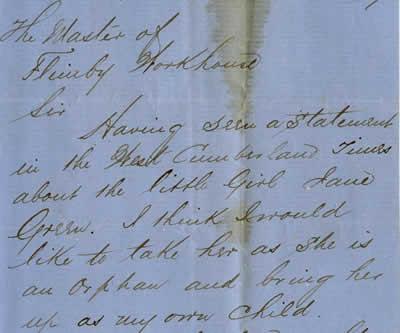 The Master of
Flimby Workhouse
Sir
Having seen a statement
in the West Cumberland Times
about the little Girl Jane
Green. I think I would
like to take her as she is
an orphan and bring her
up as my own child.